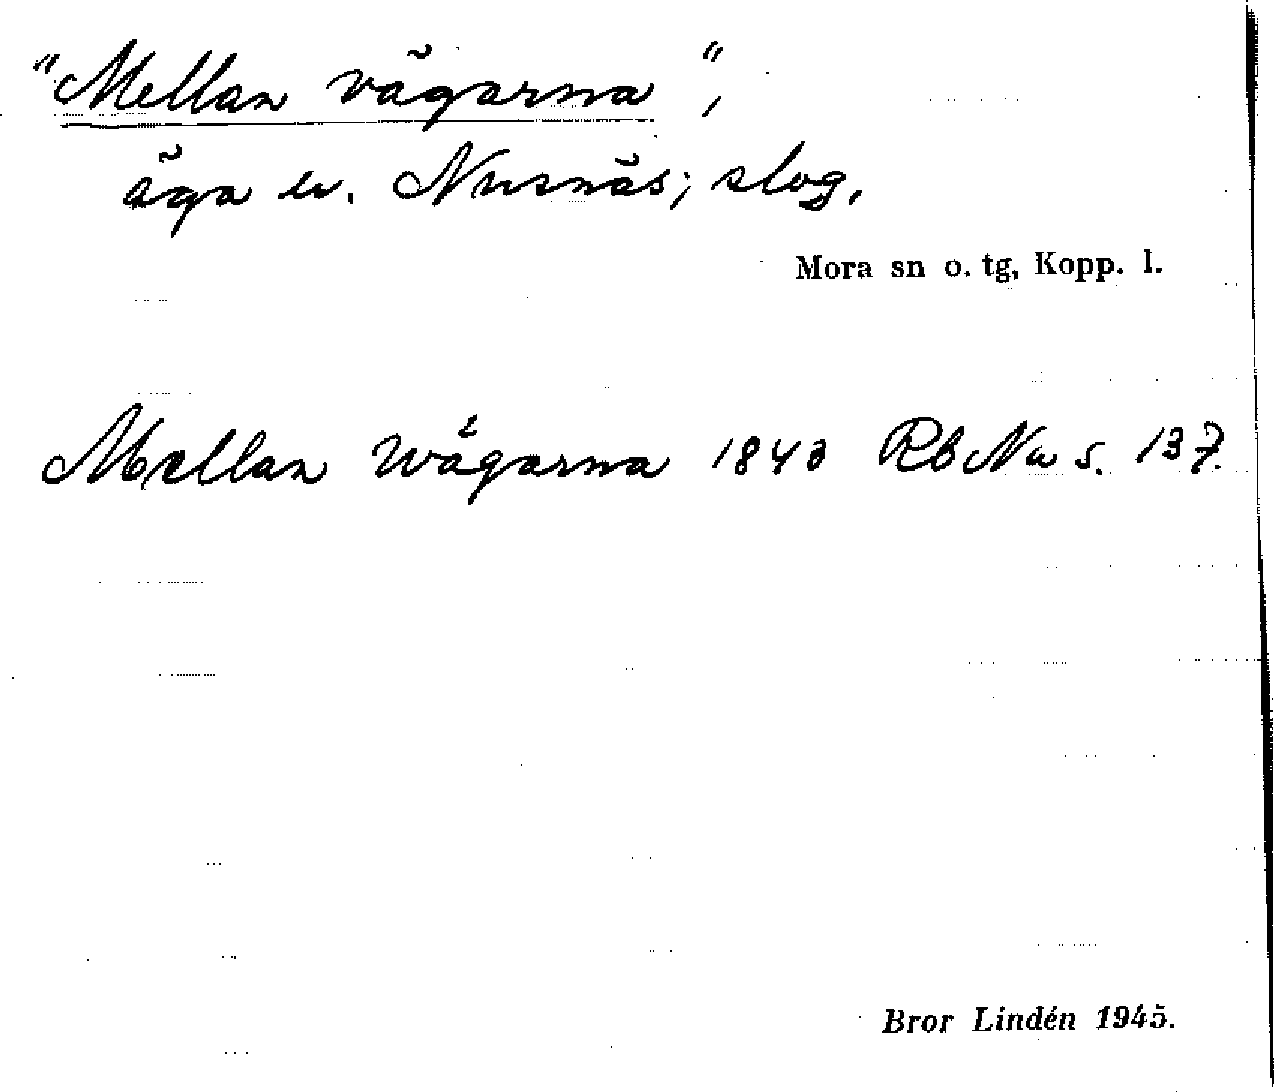 "Mellan vägarna",
äga ev. Nusnäs; slog.
Mora sn o. tg, Kopp. l.
Mellan wägarna 1843 Rb Nu s. 137.
Bror Lindén 1945.